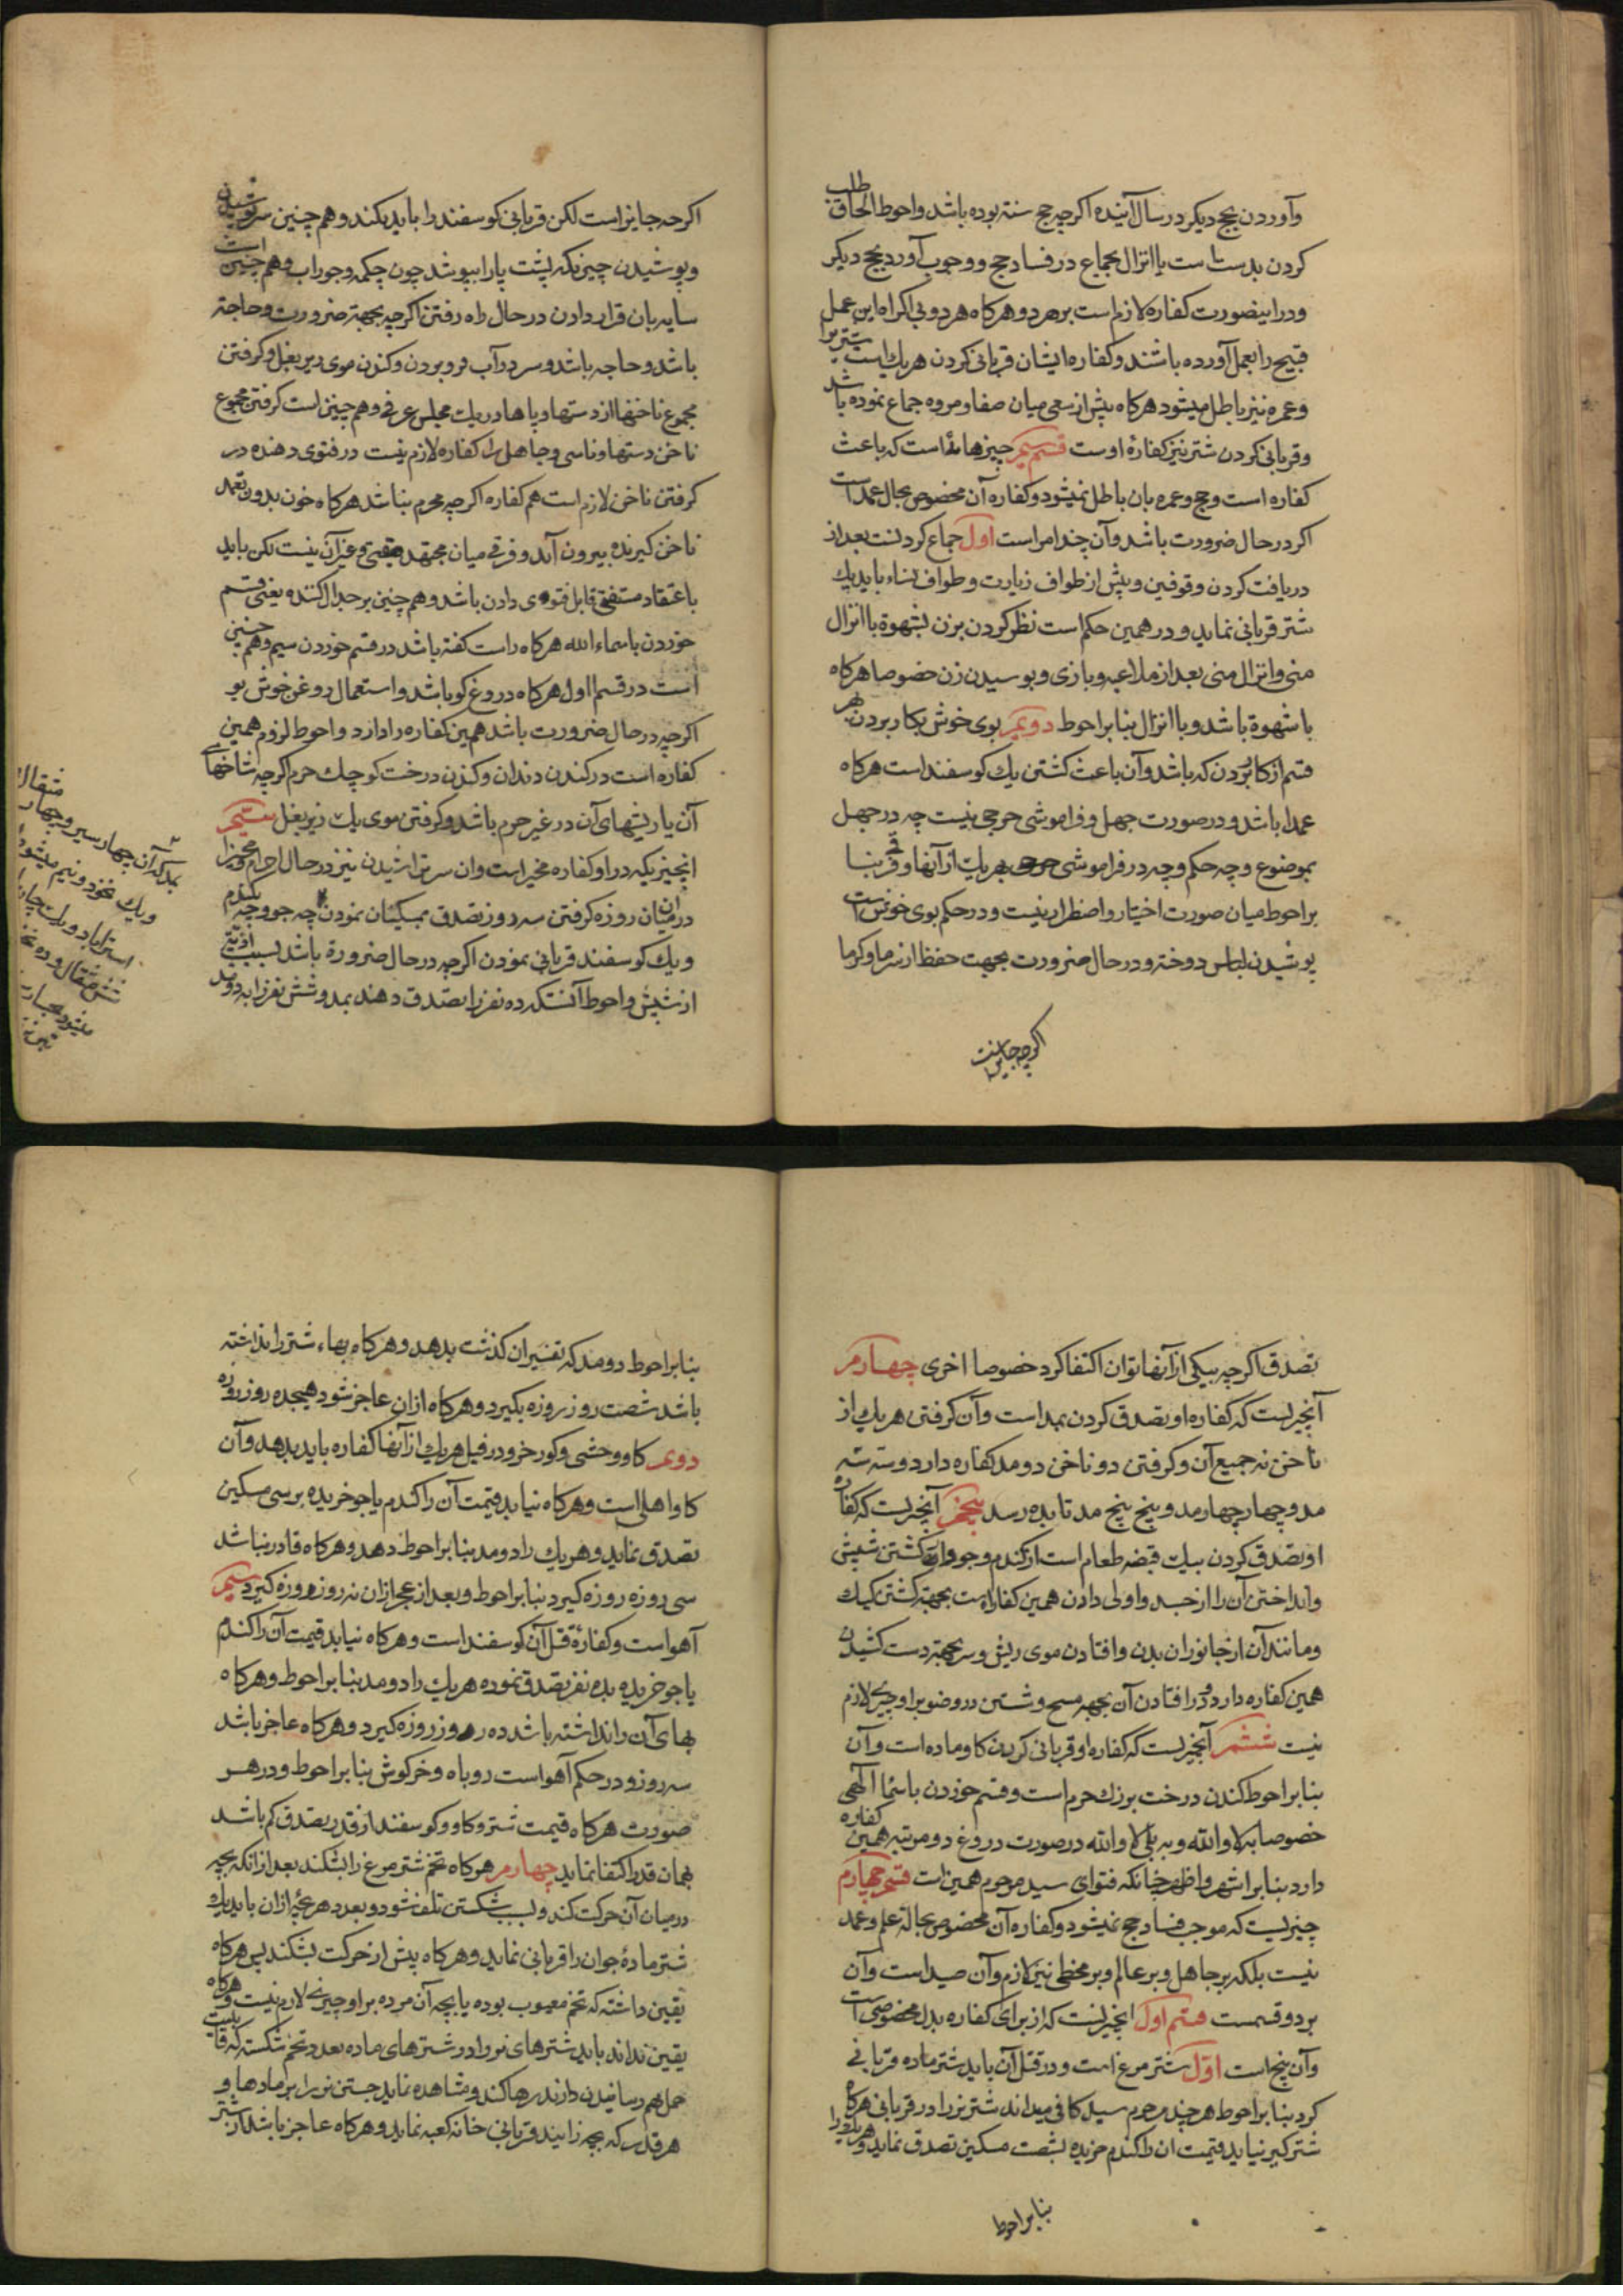 وآوردن حج دیکر در سال آینده اکرچه حج سنته بوده باشد واحوط الحاق طلب
کردن بدست است یا انزال بجماع در فساد حج ووجوب آورد حج دیکر
ودراینصورت کفاره لازم است بر هر دو وهرکاه هر دو بی اکراه این عمل
قبیح را بعمل آورده باشند وکفاره ایشان قربانی کردن هریك است شتر را
وعمره نیز باطل میشود هرکاه پیش از سعی میان صفا ومروه جماع نموده باشد
وقربانی کردن شتر نیز کفارۀ اوست قسم سیم چیزهائی است که باعث
کفاره است وحج وعمره بان باطل نمیشود وکفاره آن مخصوص بحال عمد است
اکر در حال ضرورت باشد وآن چند امر است اول جماع کردنست بعد از
دریافت کردن وقوفین وپیش از طواف زیارت وطواف نساء باید یك
شتر قربانی نماید ودر همین حکم است نظر کردن بزن بشهوة با انزال
منی وانزال منی بعد از ملاعبه وبازی وبوسیدن زن خصوصا هرکاه
با شهوة باشد وبا انزال بنابر احوط دویم بوی خوش بکار بردن بهر
قسم از کار بردن که باشد وآن باعث کشتن یك کوسفند است هرکاه
عمدا باشد ودر صورت جهل وفراموشی حرجی نیست چه در جهل
بموضوع وچه حکم وچه در فراموشی بهریك از آنها وفرقی بنا
بر احوط میان صورت اختیار واضطرار نیست ودر حکم بوی خوش است
پوشیدن لباس دوخته ودر حال ضرورت بجهت حفظ از سرما وکرما
اکرچه جایز است
اکرچه جایز است لکن قربانی کوسفند را باید بکند وهم چنین سر پوشیدن
وپوشیدن چیزیکه پشت پا را بپوشد چون چکمه وجوراب وهم چنین است
سایه بان قرار دادن در حال راه رفتن اکرچه بجهته ضرورت وحاجته
باشد وحاجه باشد وسر در آب فرو بردن وکندن موی زیر بغل وکرفتن
مجموع ناخنها از دستها وپاها در یك مجلس عرفی وهم چنین است کرفتن مجموع
ناخن دستها وناسی وجاهل را کفاره لازم نیست در فتوی دهنده در
کرفتن ناخن لازم است هم کفاره اکرچه محرم نباشد هرکاه خون بدون تعمد
ناخن کیرنده بیرون آید وفرقی میان مجتهد وغیر آن نیست لکن باید
باعتقاد مستفتی قابل فتوی دادن باشد وهم چنین بر جدال کننده یعنی قسم
خوردن باسماء الله هرکاه راست کفته باشد در قسم خوردن سیم وهم چنین
است در قسم اول هرکاه دروغ کو باشد واستعمال روغن خوش بو
اکرچه در حال ضرورت باشد همین کفاره را دارد واحوط لزوم همین
کفاره است در کندن دندان وکندن درخت کوچك حرم اکرچه شاخهای
آن یا ریشهای آن در غیر حرم باشد وکرفتن موی یك زیر بغل سیم
انچیزیکه در او کفاره مخیر است وان سر تراشیدن نیز در حال احرام مخیر
درمیان روزه کرفتن سه روز تصدق بمسکینان نمودن چه جو وچه کندم
ویك کوسفند قربانی نمودن اکرچه در حال ضرورة باشد بسبب اذیّت
از شپش واحوط آنستکه ده نفر را تصدق دهند بمد وشش نفر را به دو مد
مثقال
بدانکه آن چهار سیر وچهار
ویك نخود ونیم میشود
تصدق اکرچه بیکی از آنها توان اکتفا کرد خصوصا اخری چهارم
آنچیزیست که کفاره او تصدق کردن بمد است وآن کرفتن هریك از
ناخن نه جمیع آن وکرفتن دو ناخن دو مد کفاره دارد وسه سه
مد وچهار چهار مد وپنج پنج مد تا بده رسد پنجم آنچیزیست که کفاره
او تصدق کردن بیك قبضه طعام است از کندم وجو وان کشتن شپش
وانداختن آن را از جسد واولی دادن همین کفاراست بجهته کشتن کیك
ومانند آن از جانوران بدن وافتادن موی ریش وسر بجهته دست کشیدن
همین کفاره دارد ودر افتادن آن بجهه مسح وشستن در وضو بر او چیزی لازم
نیست ششم آنچیزیست که کفاره او قربانی کردن کاو ماده است وآن
بنابر احوط کندن درخت بزرك حرم است وقسم خوردن باسماء الهی
خصوصا به لا والله وبه بلی والله در صورت دروغ دو مرتبه همین کفاره
دارد بنابر اشهر واظهر چنانکه فتوای سید مرحوم همین است قسم چهارم
چیزیست که موجب فساد حج نمیشود وکفاره آن مخصوص بحالة علم وعمد
نیست بلکه بر جاهل وبر عالم وبر مخطی نیز لازم وآن صید است وآن
بر دو قسمست قسم اول انچیزیست که از برای کفاره بدل مخصوصی است
وآن پنج است اول شتر مرغ است ودر قتل آن باید شتر ماده قربانی
کرد بنابر احوط هرچند مرحوم سید کافی میداند شتر نر را در قربانی هرکاه
شتر کیر نیاید قیمت ان را کندم خریده بشصت مسکین تصدق نماید وهریك را
بنابر احوط
بنابر احوط دو مد که تفسیر ان کذشت بدهد وهرکاه بهاء شتر را نداشته
باشد شصت روز روزه بکیرد وهرکاه ازان عاجز شود هیجده روز روزه
دویم کاو وحشی وکورخر ودر قتل هریك از آنها کفاره باید بدهد وآن
کاو اهلی است وهرکاه نیابد قیمت آن را کندم یا جو خریده بر سی مسکین
تصدق نماید وهریك را دو مد بنابر احوط دهد وهرکاه قادر نباشد
سی روزه روزه کیرد بنابر احوط وبعد از عجز ازان نه روز روزه کیرد سیم
آهو است وکفارۀ قتل آن کوسفند است وهرکاه نیابد قیمت آن را کندم
یا جو خریده بده نفر تصدق نموده هریك را دو مد بنابر احوط وهرکاه
بهای آن را نداشته باشد ده روز روزه کیرد وهرکاه عاجز باشد
سه روز ودر حکم آهو است روباه وخرکوش بنابر احوط ودر هر
صورت هرکاه قیمت شتر وکاو وکوسفند از قدر تصدق کم باشد
بهمان قدر اکتفا نماید چهارم هرکاه تخم شتر مرغ را بشکند بعد از انکه بچه
درمیان آن حرکت کند وبسبب شکستن تلف شود وبعدد هر بچۀ ازان باید یك
شتر مادۀ جوان را قربانی نماید وهرکاه پیش از حرکت بشکند پس هرکاه
یقین داشته که تخم معیوب بوده یا بچه آن مرده بر او چیزی لازم نیست وهرکاه
یقین نداند باید شترهای نر را در شترهای ماده بعدد تخم شکسته که قابلیت
حمل بهم رسانیدن دارند رها کند ومشاهده نماید جستن نر را بر مادها و
هر قدر که بچه زایید قربانی خانه کعبه نماید وهرکاه عاجز باشد از شتر